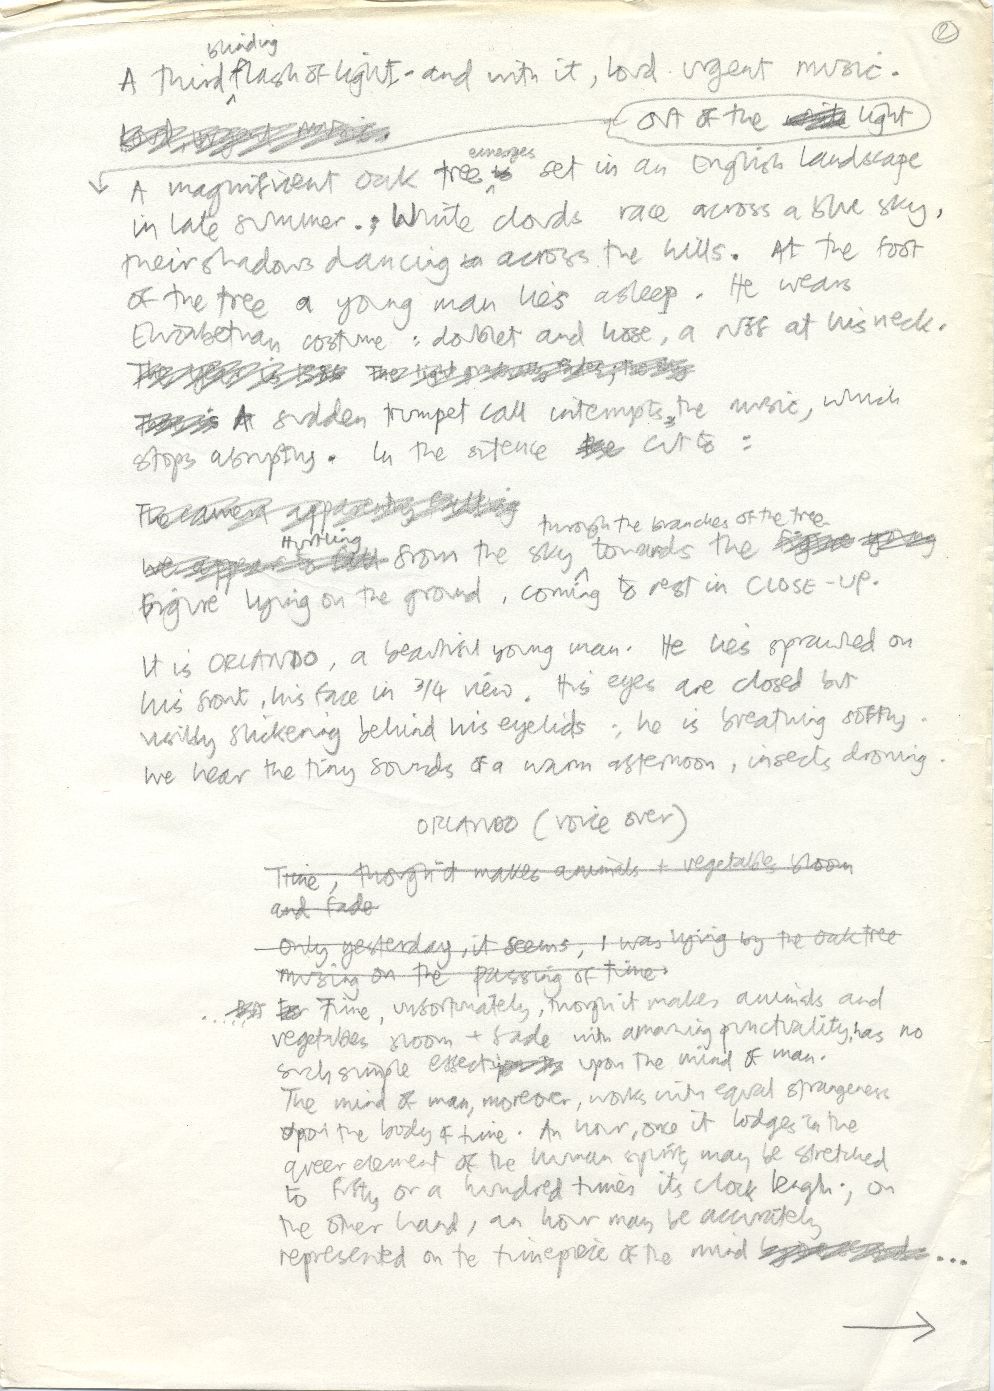 2
blinding
A third flash of light - and with it, loud urgent music.
loud, urgent music.
out of the light
emerges
A magnificent oak tree is set in an English landscape
in late summer. White clouds race across a blue sky,
their shadows dancing across the hills. At the foot
of the tree a young man lies asleep. He wears
Elizabethan costume: doublet and hose, a ruff at his neck.
A sudden trumpet call interrupts the music, which
stops abruptly. In the silence cut to:
The camera apparently falling
through the branches of the tree
Hurtling
we appear to fall from the sky towards the figure
Figure lying on the ground, coming to rest in CLOSE-UP.
It is ORLANDO, a beautiful young man. He lies sprawled on
his front, his face in 3/4 view. His eyes are closed but
visibly flickering behind his eyelids; he is breathing softly.
We hear the tiny sounds of a warm afternoon, insects droning.
ORLANDO (voice over)
Time, though it makes animals + vegetables bloom
and fade
Only yesterday, it seems, I was lying by the oak tree
musing on the passing of time.
..... But Time, unfortunately, though it makes animals and
vegetables bloom + fade with amazing punctuality, has no
such simple effect upon the mind of man.
The mind of man, moreover, works with equal strangeness
upon the body of time. An hour, once it lodges in the
queer element of the human spirit, may be stretched
to fifty or a hundred times its clock length; on
the other hand, an hour may be accurately
represented on the timepiece of the mind ...